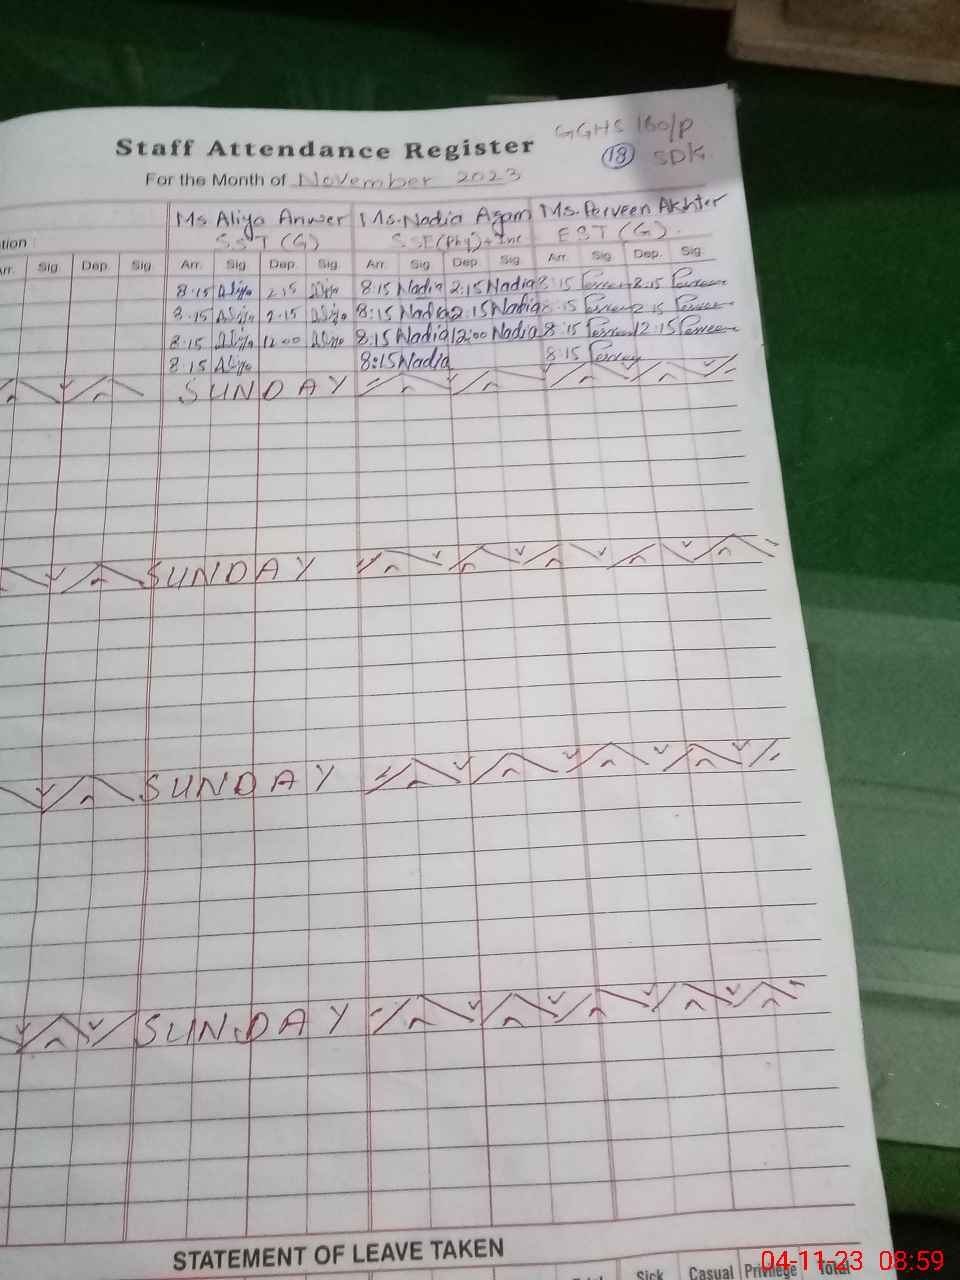 GGHS 180/P
Staff Attendance Register
18 SDK.
For the Month of November 2023
Ms Aliya Anwer Ms. Nadia Azam Ms. Perveen Akhter
tion
S.S.T (G) SSE(Phy)+Inc EST (G).
Arr. Sig Dep. Sig. Arr. Sig Dep. Sig. Arr. Sig Dep. Sig. Arr. Sig. Dep. Sig.
8.15 Aliya 2.15 Aliya 8:15 Nadia 2:15 Nadia 8:15 Perveen 2.15 Perveen
8.15 Aliya 2.15 Aliya 8:15 Nadia 2:15 Nadia 8:15 Perveen 2 15 Perveen
8:15 Aliya 12:00 Aliya 8:15 Nadia 12:00 Nadia 8:15 Perveen 12:15 Perveen
8 15 Aliya 8:15 Nadia 8:15 Perveen
SUNDAY
SUNDAY
SUNDAY
SUNDAY
STATEMENT OF LEAVE TAKEN
Sick Casual Privilege Total
04-11-23 08:59